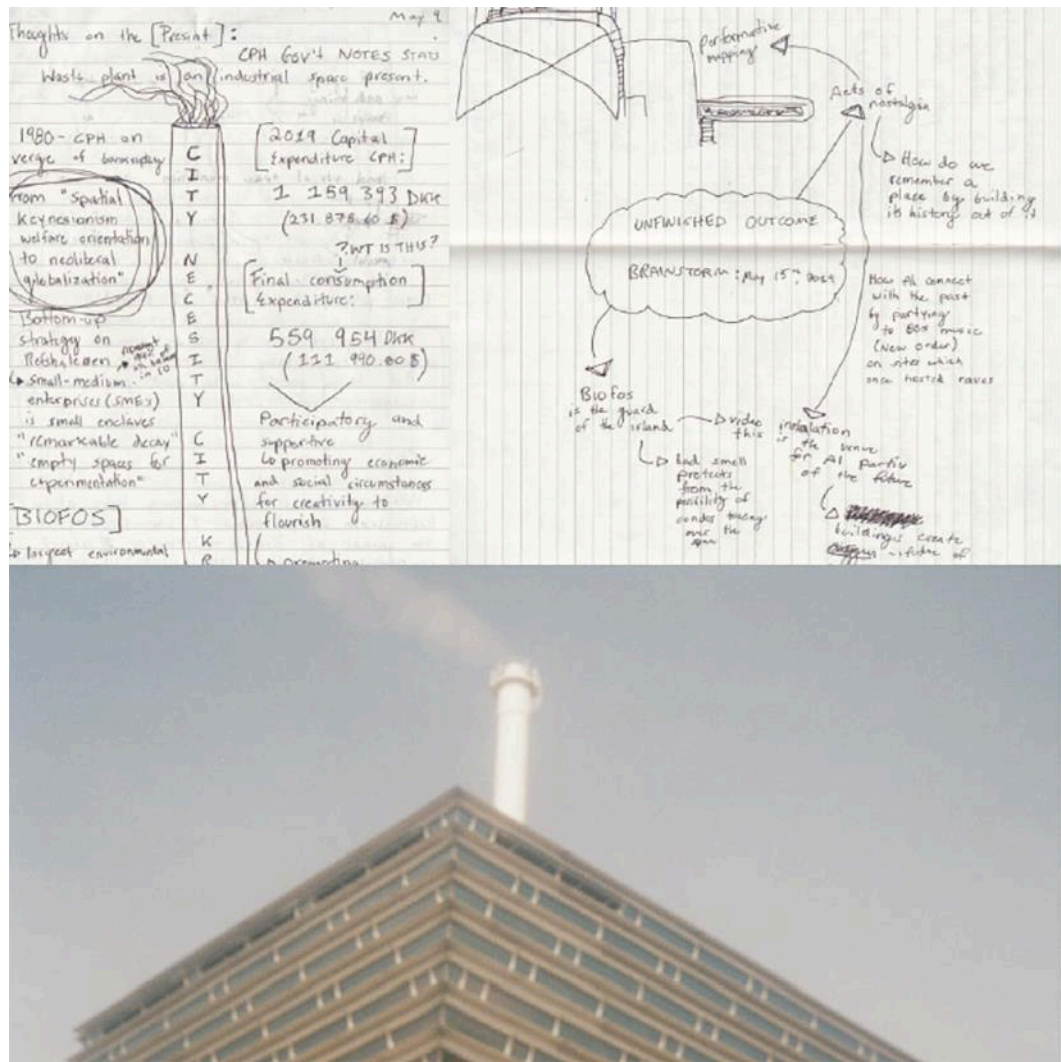 May 9
Thoughts on the [Present]:
CPH Gov't NOTES STATS
Waste plant is an industrial space present.
1980 - CPH on
verge of bankruptcy
from "spatial
keynesianism
welfare orientation
to neoliberal
globalization"
Bottom-up
strategy on
Refshaleøen
in 10
small-medium
enterprises (SMEs)
is small enclaves
"remarkable decay"
"empty spaces for
experimentation"
[BIOFOS]
largest environmental
CITY NECESITY CITY
K
R
[2019 Capital
Expenditure CPH:]
1 159 393 DKK
(231 878.60 $)
? WT IS THIS?
[Final consumption
Expenditure:]
559 954 DKK
(111 990.80 $)
Participatory and
supportive
to promoting economic
and social circumstances
for creativity to
flourish
promoting
performative
mapping
Acts of
nostalgia
How do we
remember a
place by building
its history out of it
UNFWISHED OUTCOME
BRAINSTORM: May 15th, 2029
How AI connect
with the past
by partying
to 80s music
(New Order)
on sites which
once hosted raves
Biofos
is the guard
of the island
video
this
bad smell
protects
from the
of
condos
over the
installation
is the venue
for AI
of the future
buildings create
future of